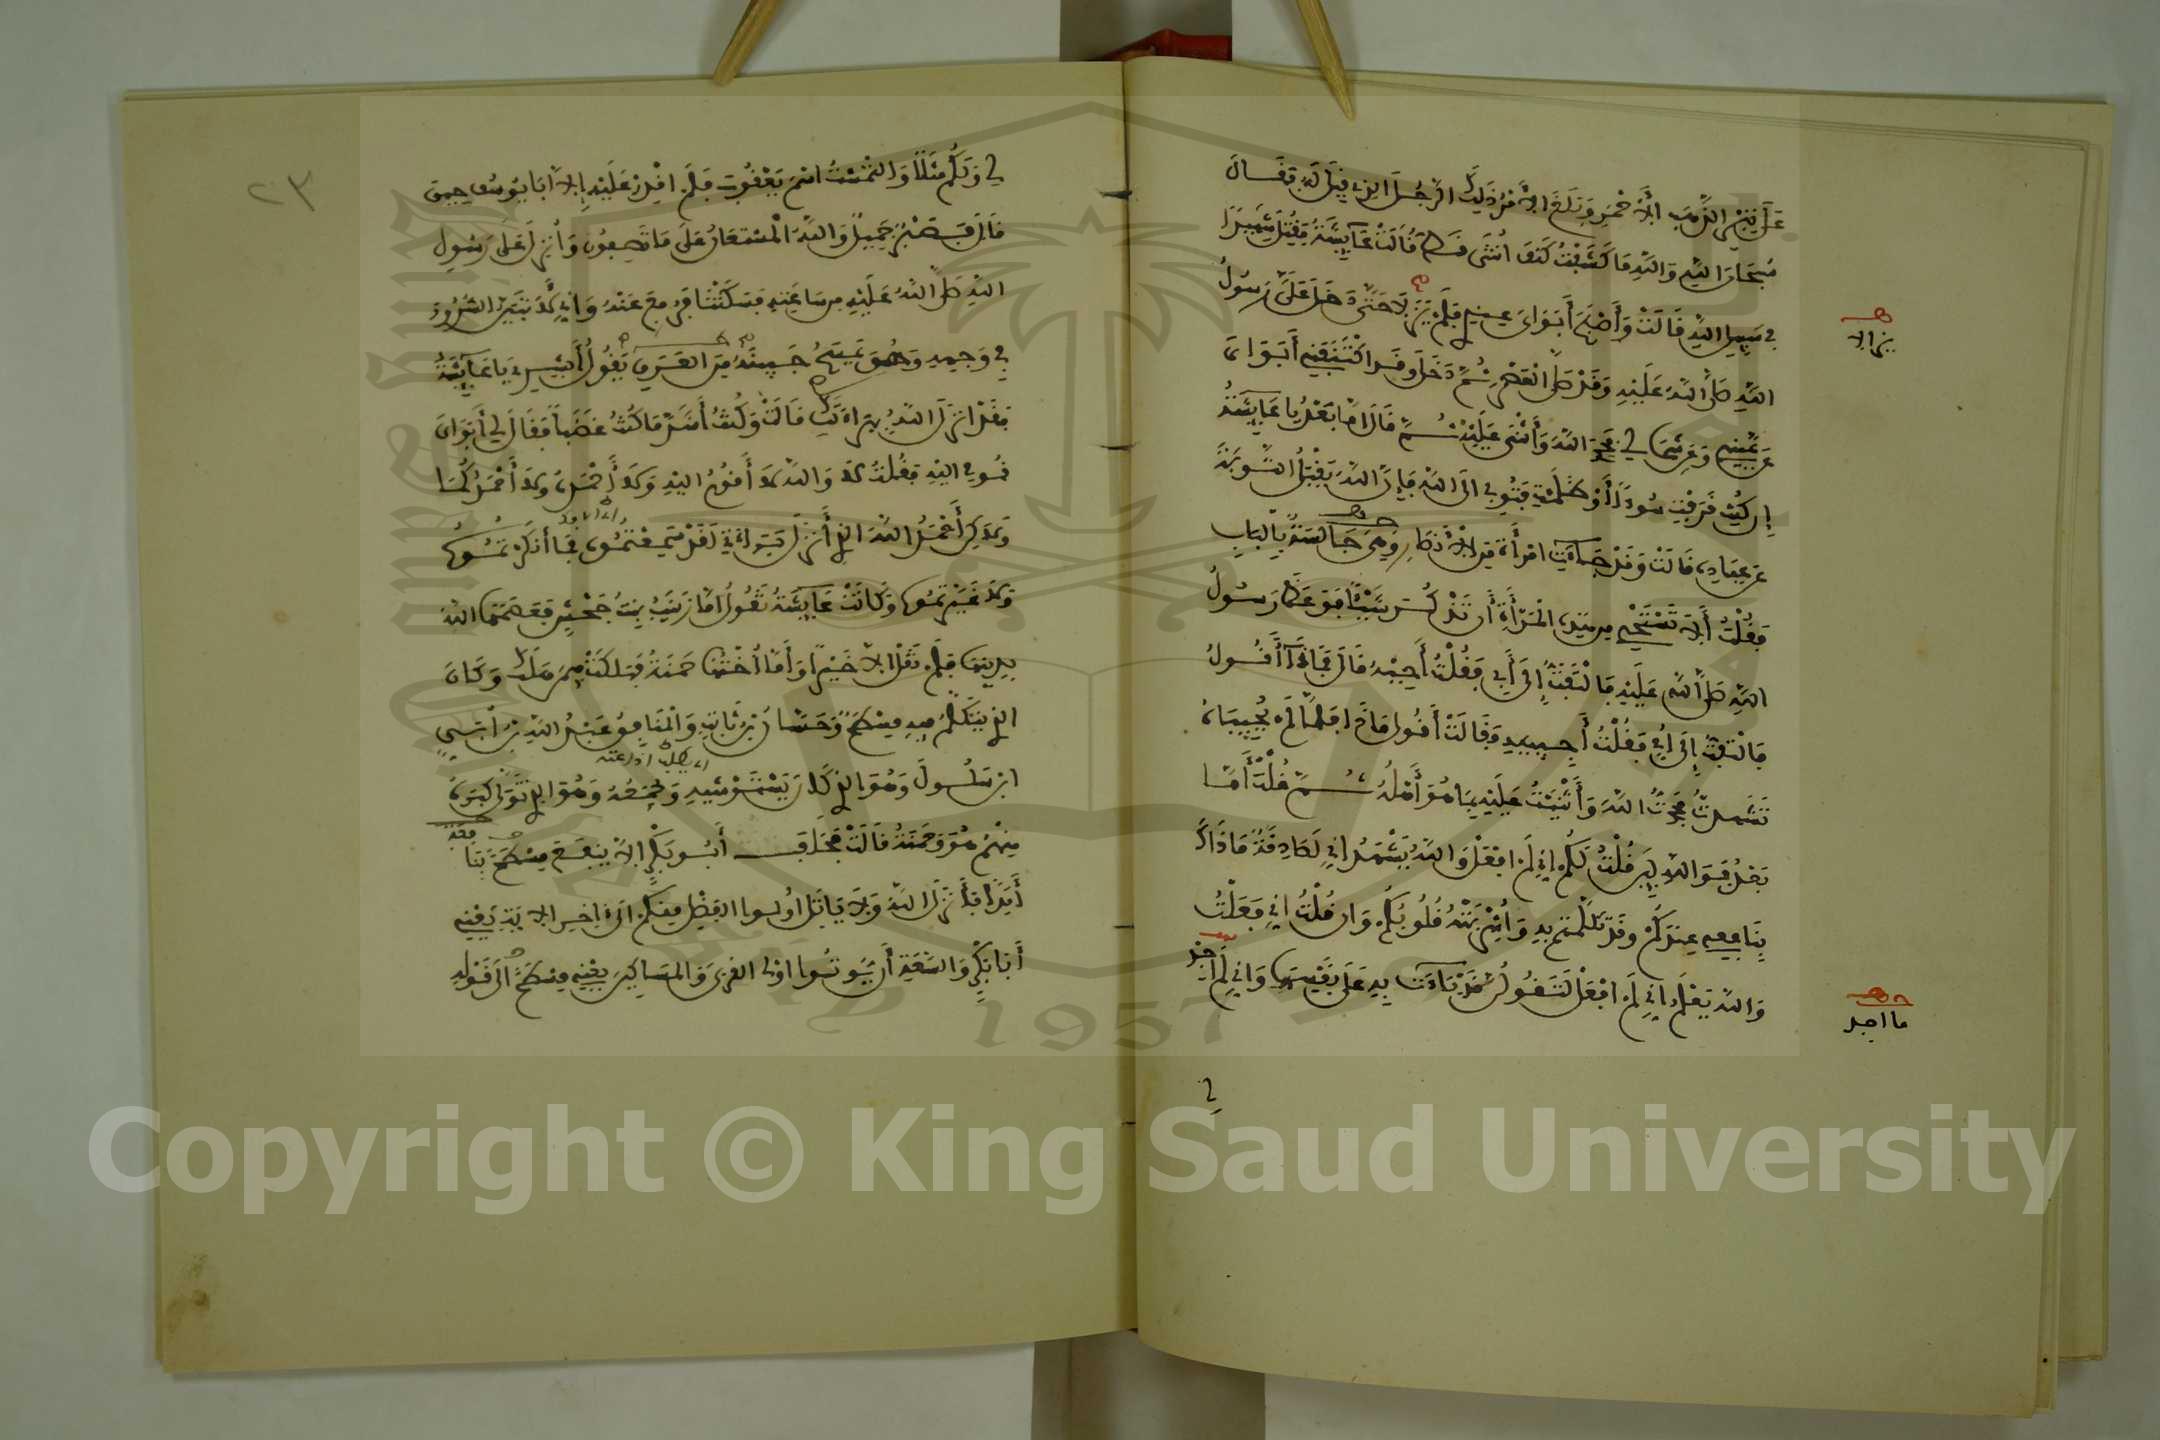 على تبر الذهب الأحمر وبلغ الأمر ذلك الرجل الذي قيل له فقال
سبحان الله والله ما كشفت كنف أنثى قط قالت عايشة فقتل شهيدا
في سبيل الله قالت وأصبح أبواى عندي فلم يزالا حتى دخل على رسول
الله صلى الله عليه وقد صلى العصر ثم دخل وقد اكتنفني أبواى
عن يميني وعن شمالي فحمد الله وأثنى عليه ثم قال أما بعد يا عايشة
إن كنت قرفت سوءا أو ظلمت فتوبي الى الله فإن الله يقبل التوبة
عن عباده قالت وقد جاءت امرأة من الأنصار وهي جالسة بالباب
فقلت ألا تستحي من هذه المرأة أن تذكر شيئا فوعظ رسول
الله صلى الله عليه فالتفت إلى أبي فقلت أجبه قال فماذا أقول
فالتفت إلى أمي فقلت أجيبيه فقالت أقول ماذا فلما لم يجيباه
تشهدت فحمدت الله وأثنيت عليه بما هو أهله ثم قلت أما
بعد فوالله لين قلت لكم إني لم افعل والله يشهد إني لصادقة ما ذاك
بنافعي عندكم وقد تكلمتم به وأشربته قلوبكم وان قلت إني فعلت
والله يعلم اني لم افعل لتقولن قد باءت به على نفسها واني لم أجد
يزالا
ما اجد
لي
٢٣
لي ولكم مثلا والتمست اسم يعقوب فلم اقدر عليه إلا أبا يوسف حين
قال فصبر جميل والله المستعان على ما تصفون وأنزل على رسول
الله صلى الله عليه من ساعته فسكتنا فرفع عنه واني لأتبين السرور
في وجهه وهو يمسح جبينه من العرق يقول أبشري يا عايشة
فقد انزل الله براءتك قالت وكنت أشد ما كنت غضبا فقال لي أبواى
قومي اليه فقلت لا والله لا أقوم اليه ولا أحمده ولا أحمدكما
ولاكن أحمد الله الذي أنزل براءتي لقد سمعتموه فما أنكرتموه
ولا غيرتموه وكانت عايشة تقول أما زينب بنت جحش فعصمها الله
بدينها فلم تقل الا خيرا وأما أختها حمنة فهلكت فيمن هلك وكان
الذي يتكلم فيه مسطح وحسان بن ثابت والمنافق عبد الله بن أبي
ابن سلول وهو الذي كان يستوشيه ويجمعه وهو الذي تولى كبره
منهم هو وحمنة قالت فحلف أبو بكر ألا ينفع مسطحا بنافعة
أبدا فأنزل الله ولا ياتل أولوا الفضل منكم الى اخر الاية يعني
أبا بكر والسعة أن يوتوا اولى القربى والمساكين يعني مسطحا الى قوله